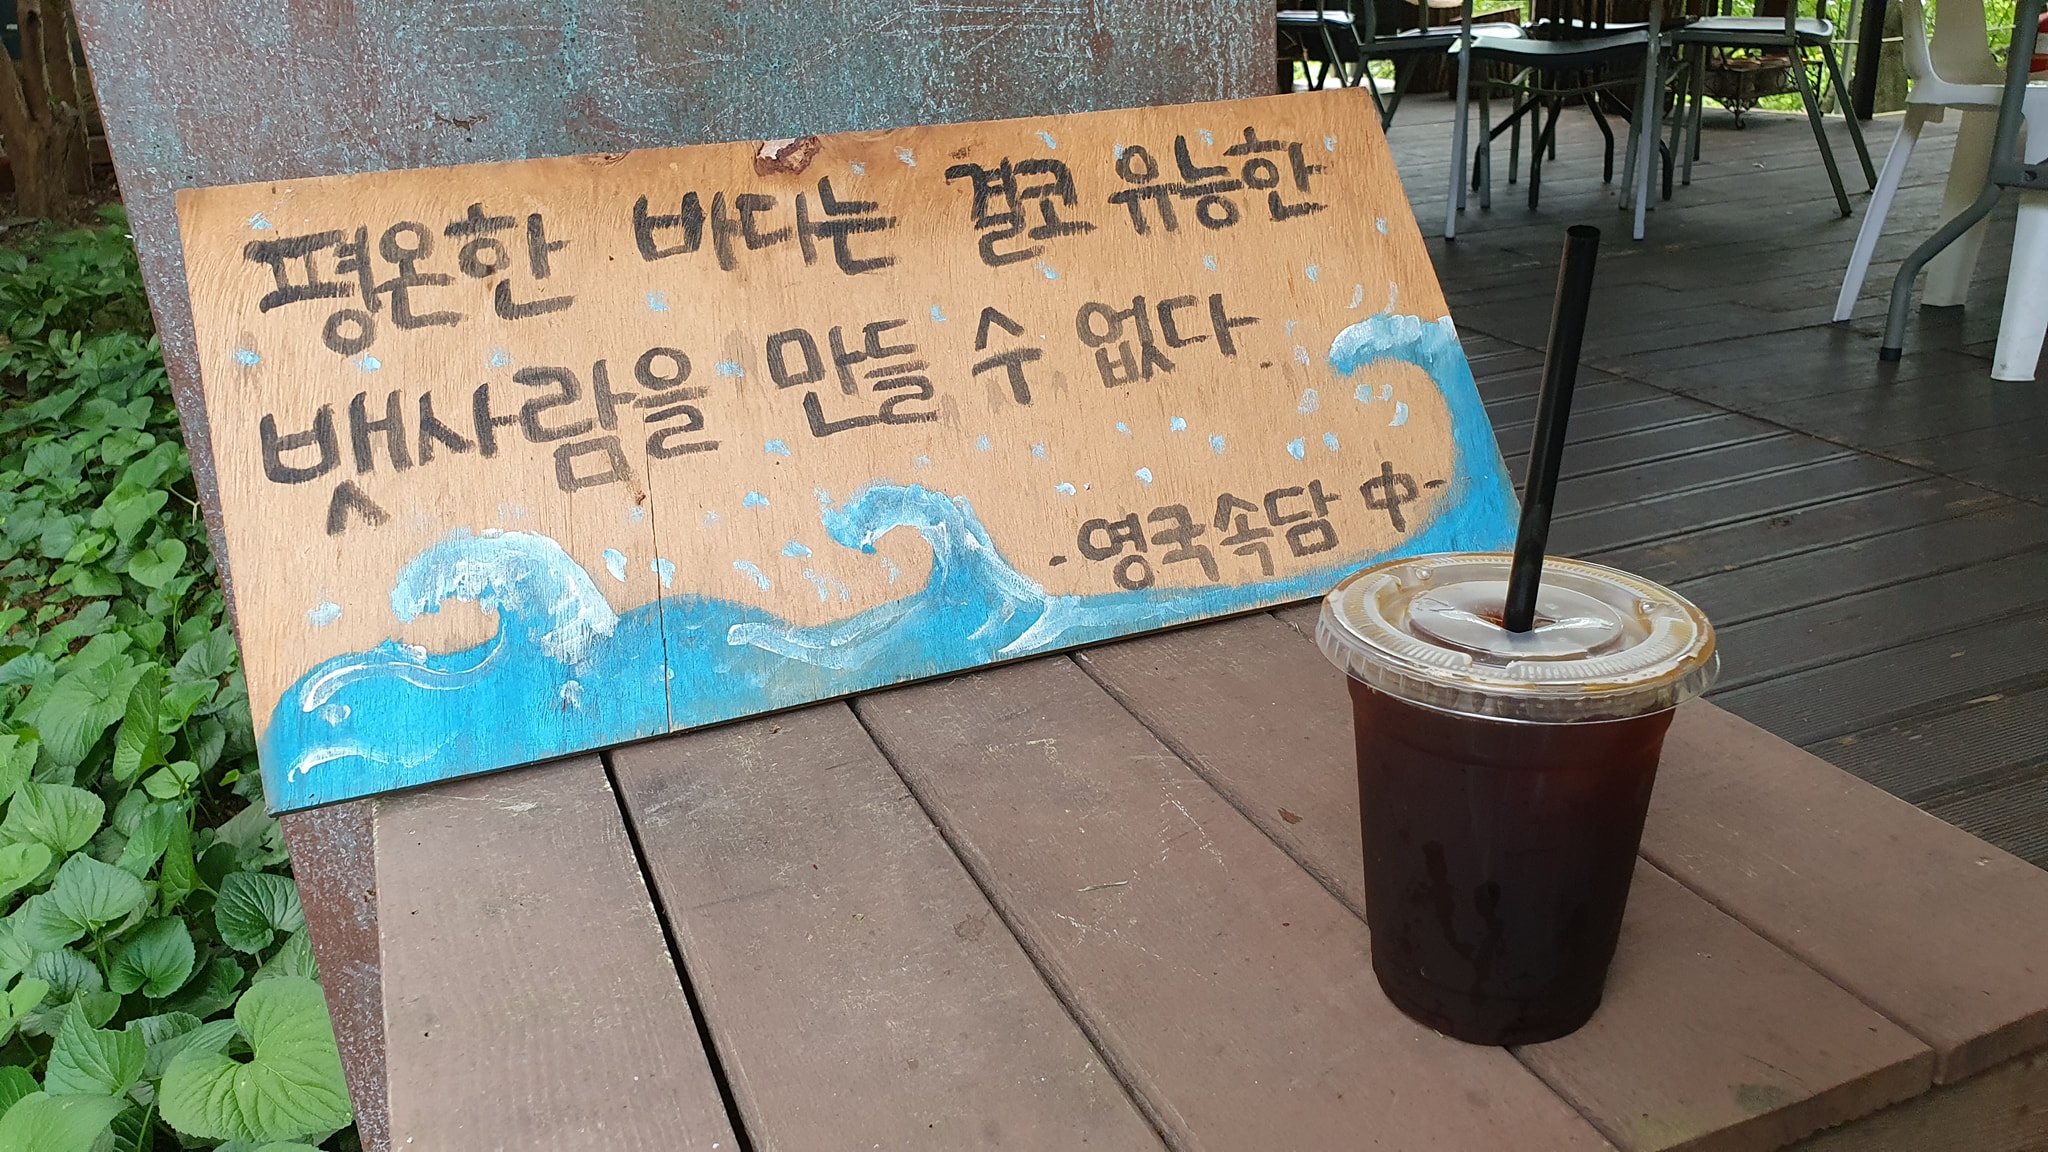 평온한 바다는 결코 유능한
뱃사람을 만들 수 없다.
- 영국속담 中 -